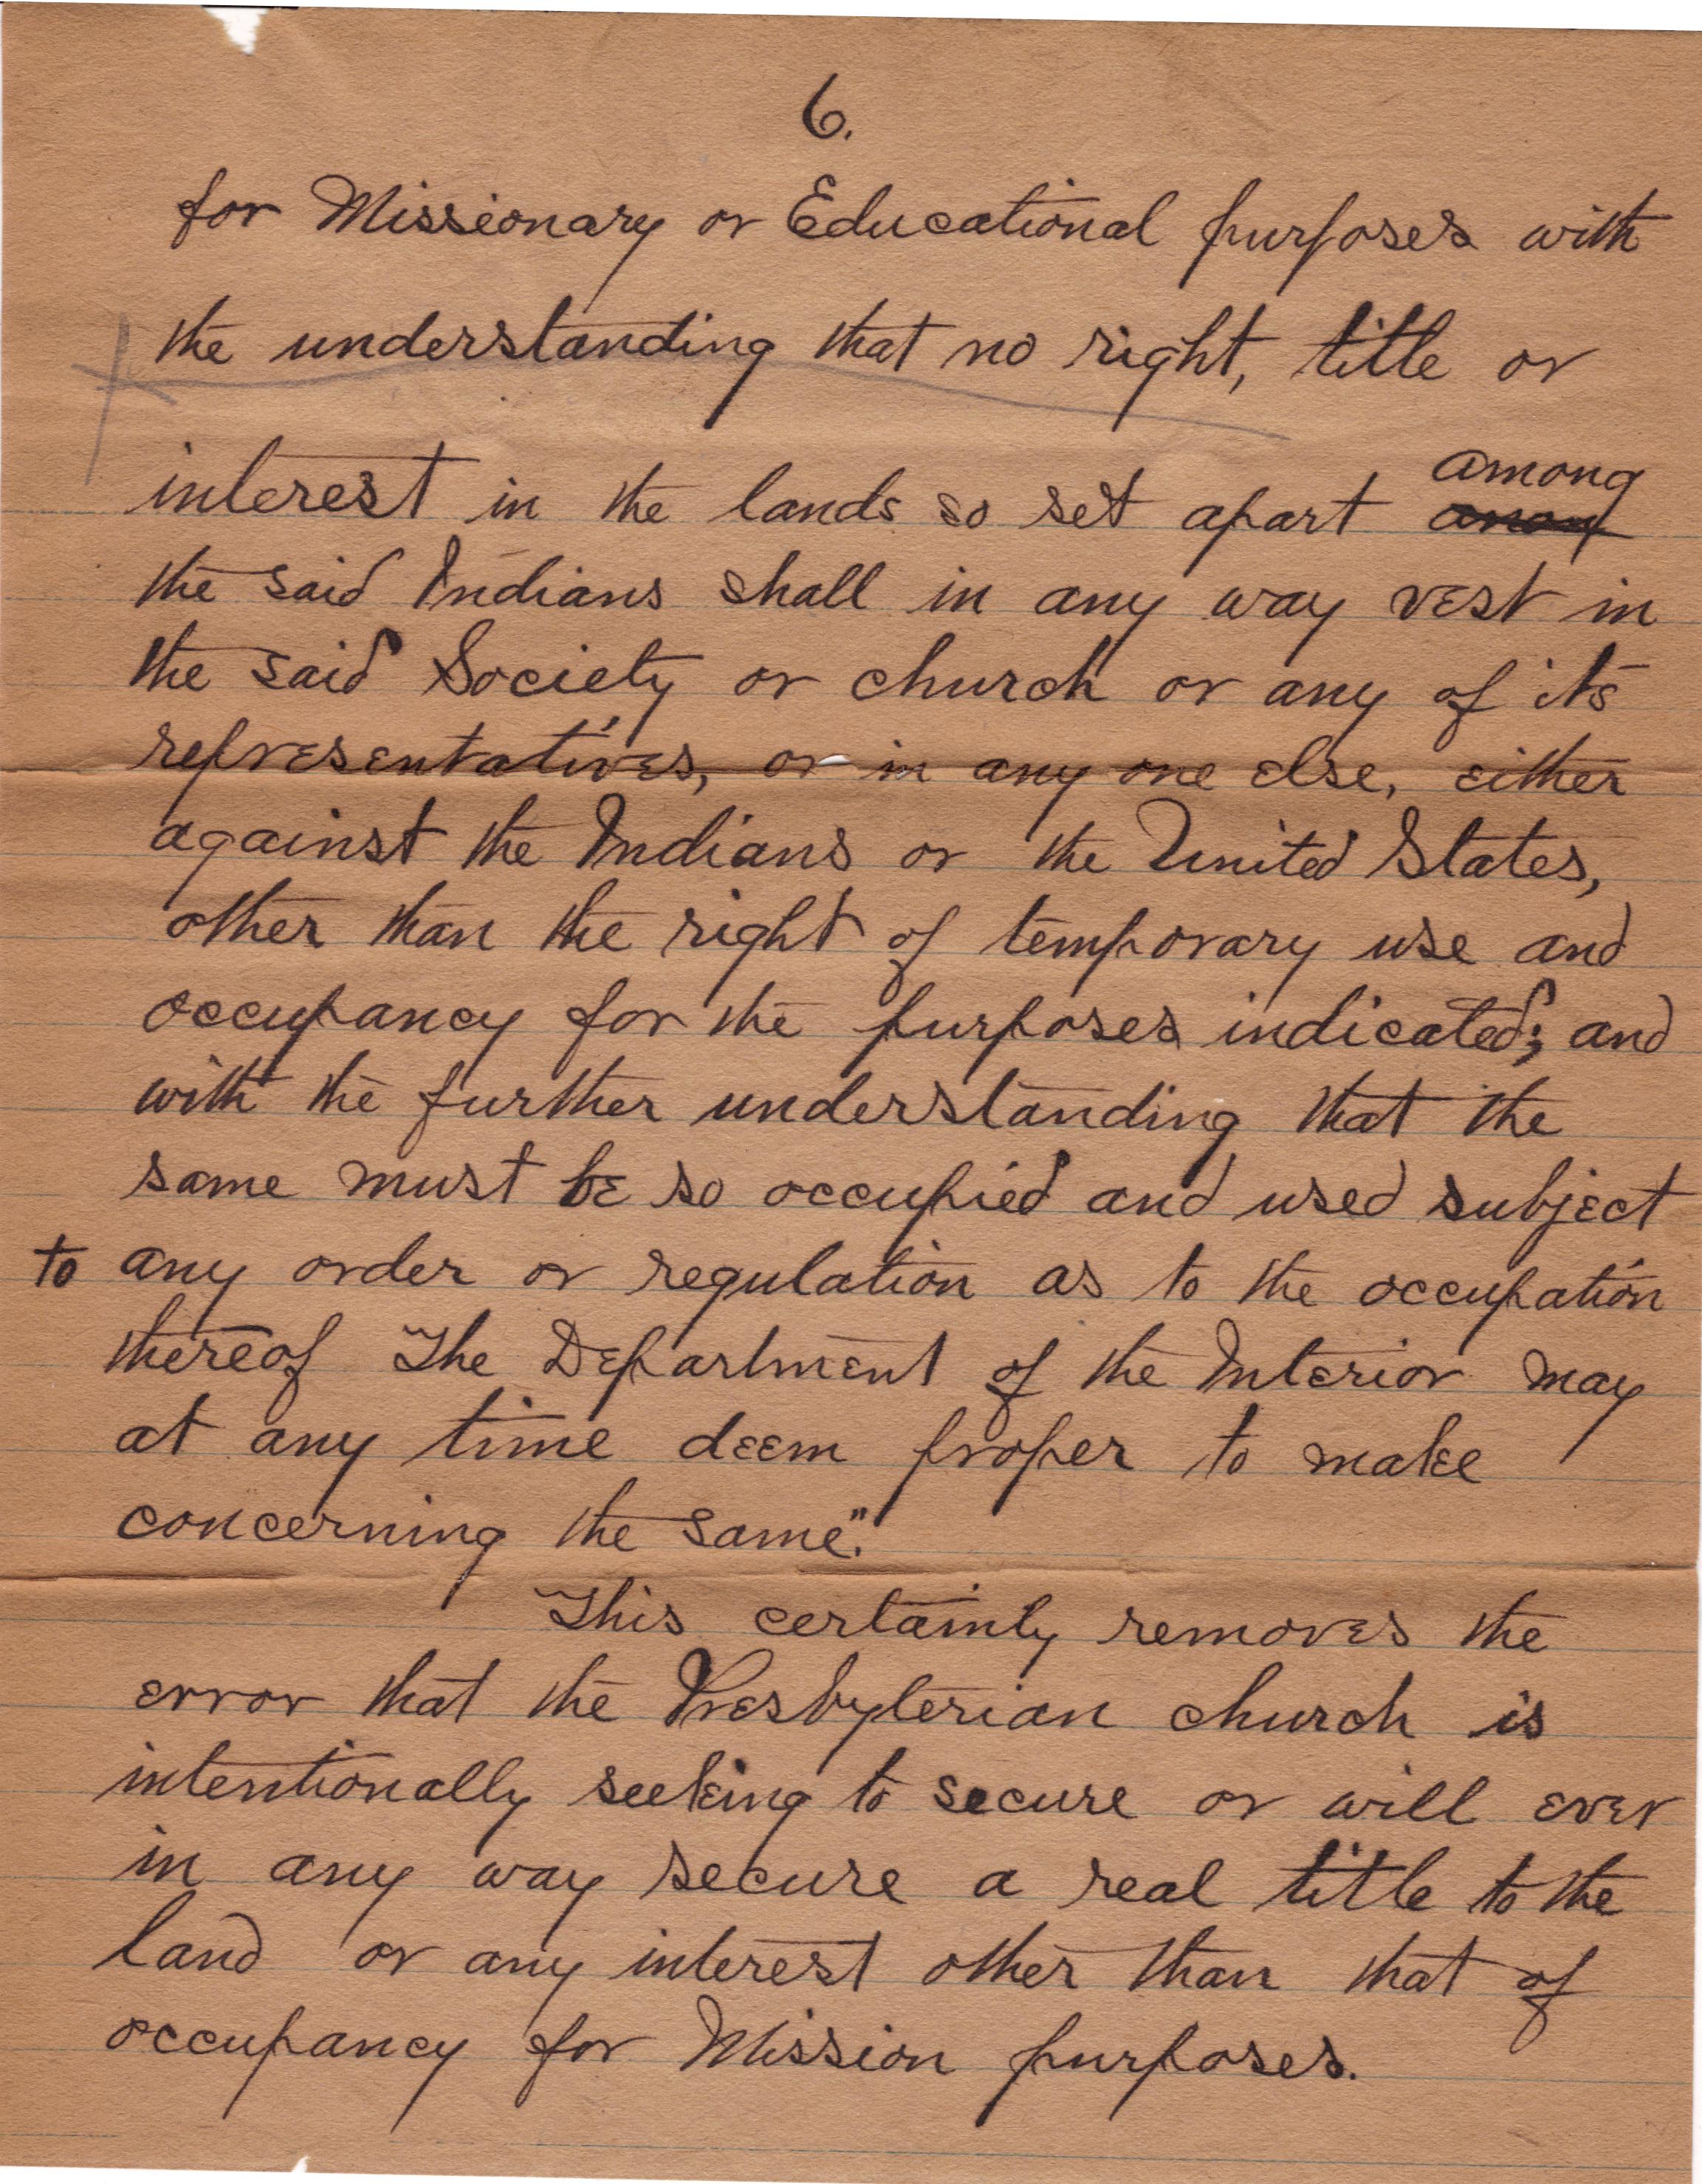 6.
for Missionary or Educational purposes with
the understanding that no right, title or
among
interest in the lands so set apart
the said Indians shall in any way vest in
the said Society or church or any of its
representatives, or in any one else, either
against the Indians or the United States,
other than the right of temporary use and
occupancy for the purposes indicated; and
with the further understanding that the
same must be so occupied and used subject
to any order or regulation as to the occupation
thereof The Department of the Interior may
at any time deem proper to make
concerning the same."
This certainly removes the
error that the Presbyterian church is
intentionally seeking to secure or will ever
in any way secure a real title to the
land or any interest other than that of
occupancy for Mission purposes.